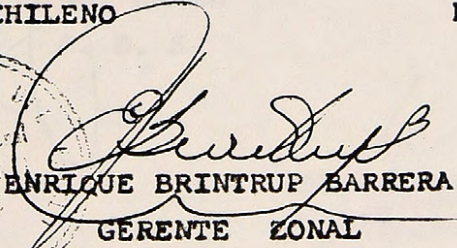 CHILENO
ENRIQUE BRINTRUP BARRERA
GERENTE ZONAL